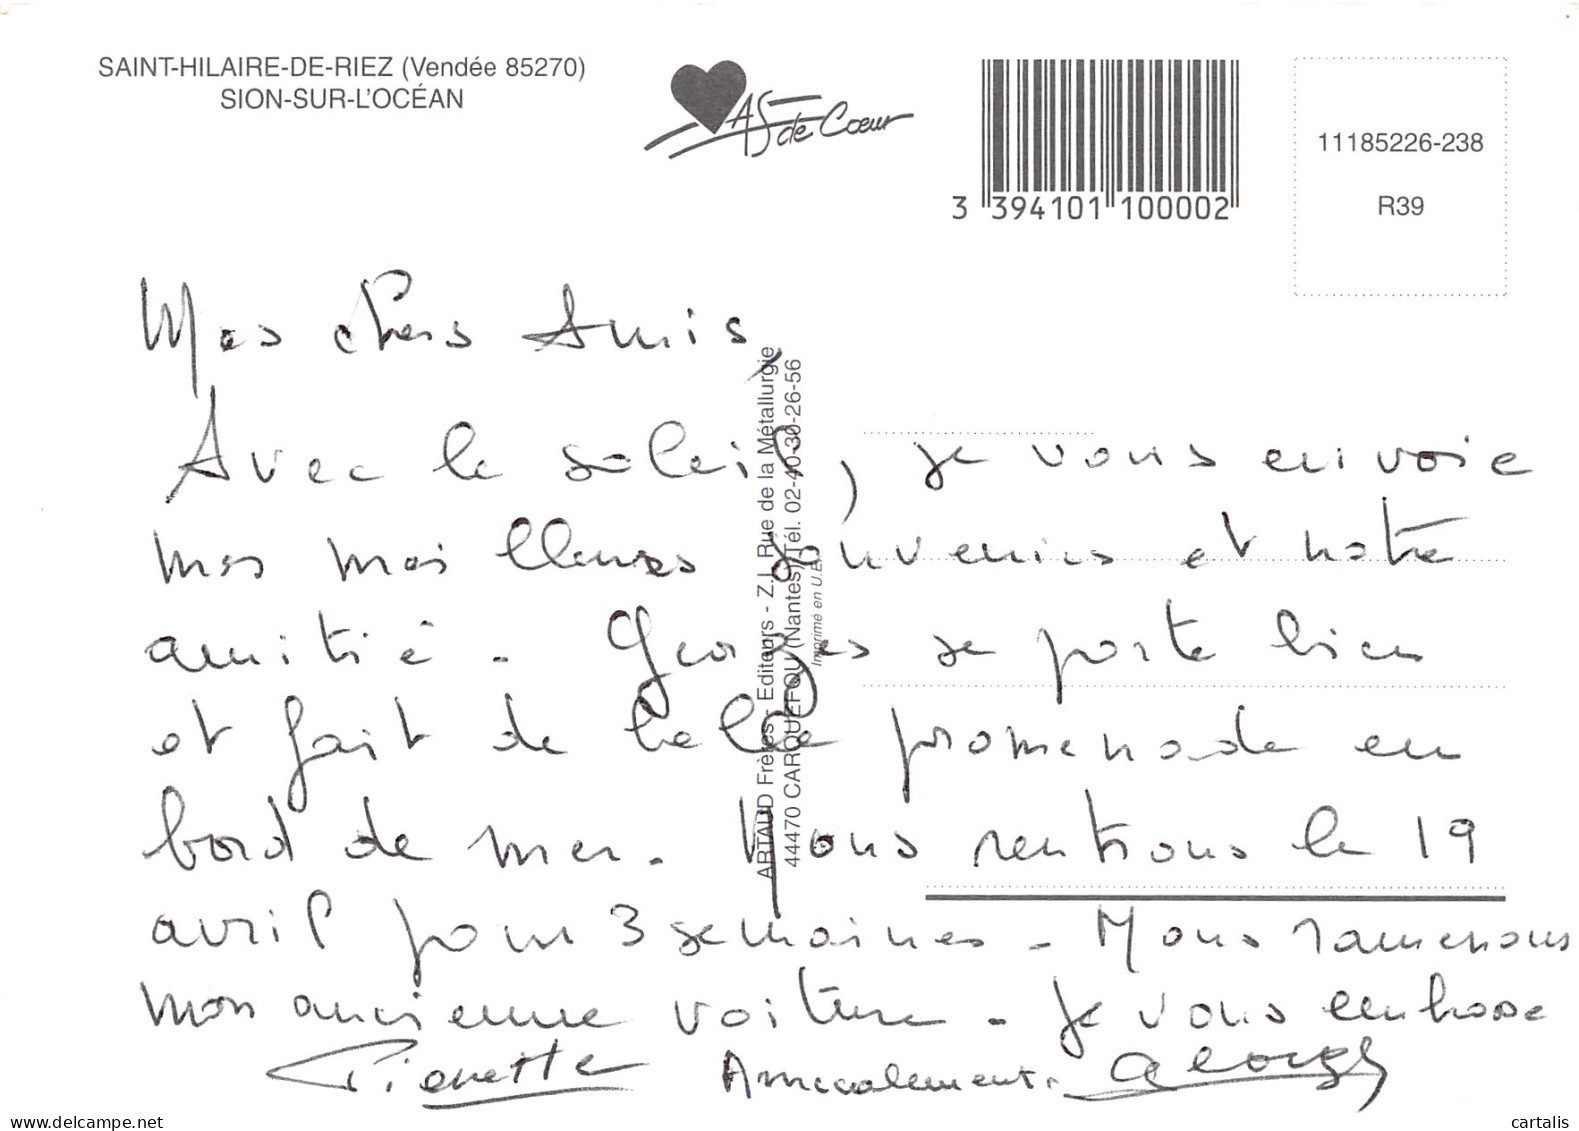 SAINT-HILAIRE-DE-RIEZ (Vendée 85270)
SION-SUR-L'OCÉAN
AS de Cœur
3 394101 100002
11185226-238
R39
Mes chers Amis,
Avec le soleil, je vous envoie
mes meilleurs souvenirs et notre
amitié. Georges se porte bien
et fait de belle promenade en
bord de mer. Nous rentrons le 19
avril pour 3 semaines. Nous ramenons
mon ancienne voiture. Je vous embrasse
Pierrette Amicalement. Georges
ARTAUD Frères - Editeurs - Z.I. Rue de la Métallurgie
44470 CARQUEFOU (Nantes) Tél. 02-40-30-26-56
Imprimé en U.E.
cartalis